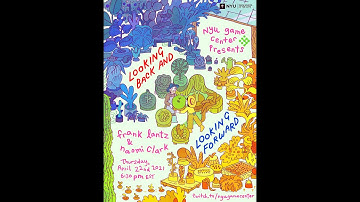 NYU
NYU game
center
presents
LOOKING
BACK AND
LOOKING
FORWARD
frank lantz
&
naomi clark
Thursday,
April 22nd 2021
6:30 pm EST
twitch.tv/nyugamecenter